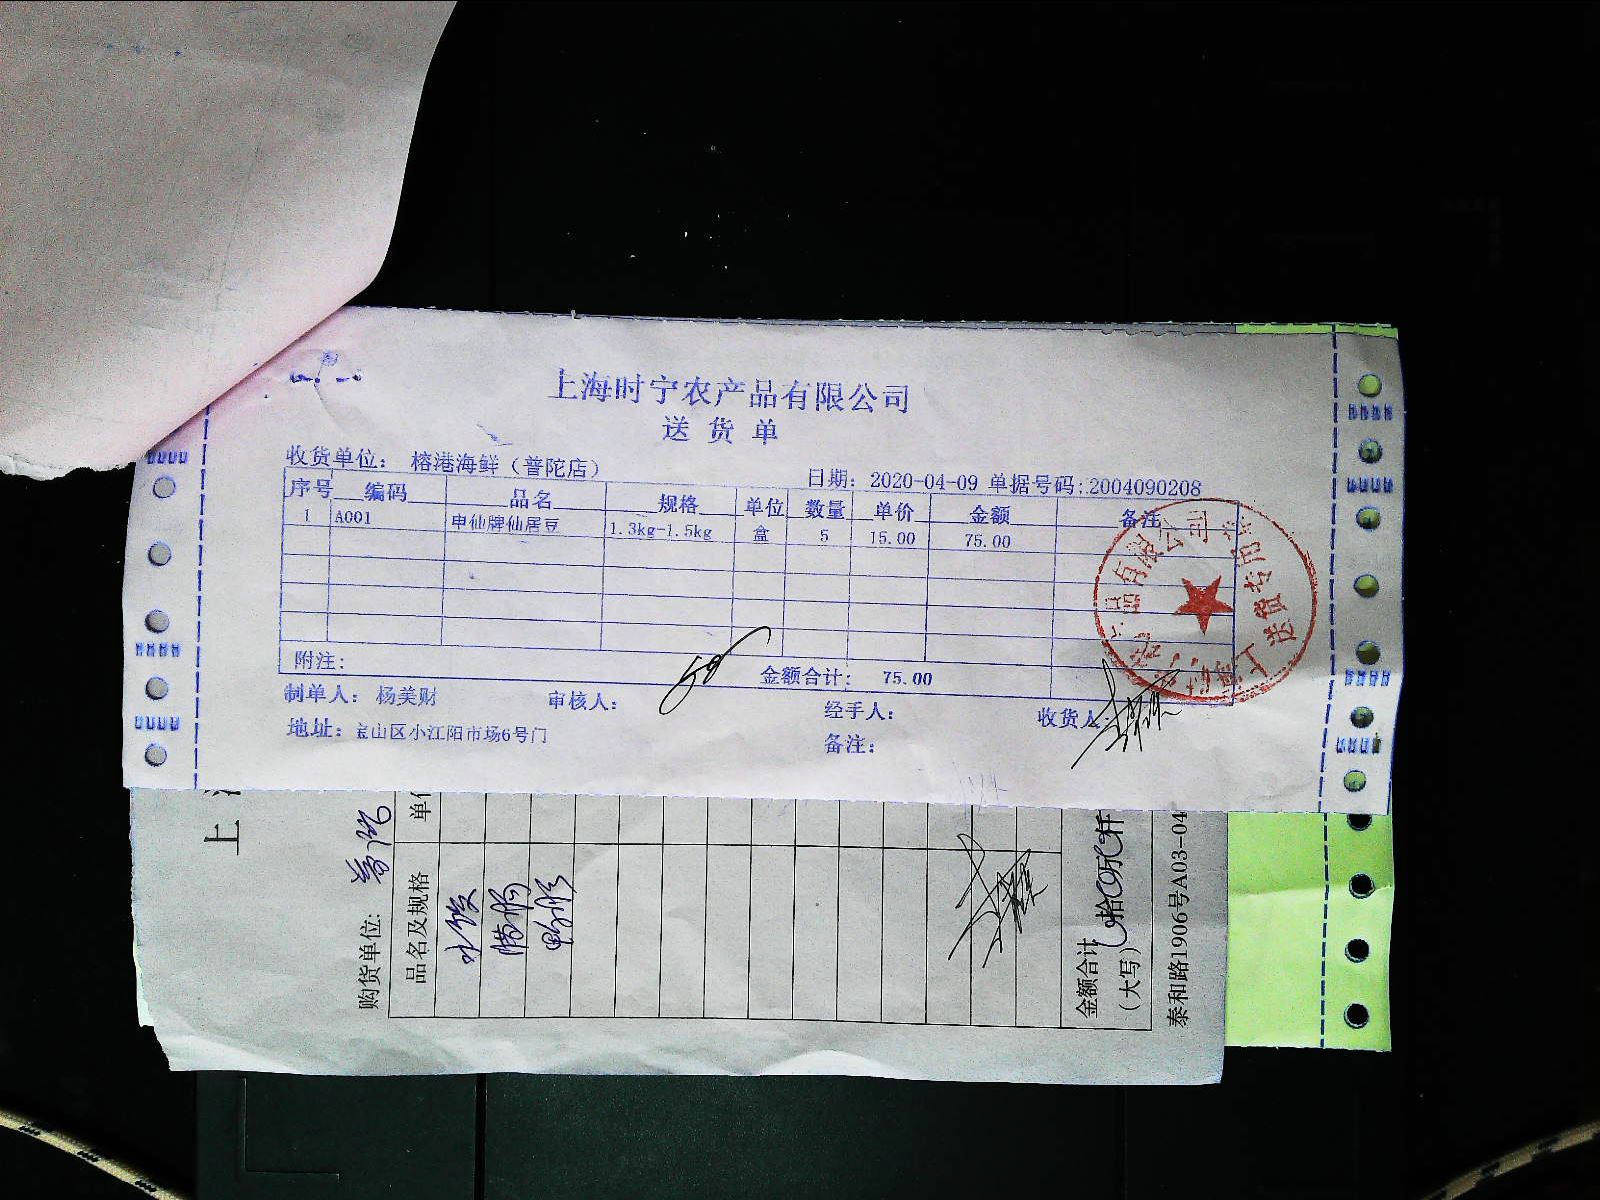 上海时宁农产品有限公司
送货单
收货单位： 榕港海鲜（普陀店）
日期： 2020-04-09 单据号码:2004090208
序号 编码 品名 规格 单位 数量 单价 金额 备注
1 A001 申仙牌仙居豆 1.3kg-1.5kg 盒 5 15.00 75.00
附注： 金额合计： 75.00
制单人： 杨美财 审核人： 经手人： 收货人：
地址：宝山区小江阳市场6号门 备注：
品有限公司
送货专用
上
购货单位:
品名及规格
金额合计
（大写） 拾 万 仟
泰和路1906号A03-04